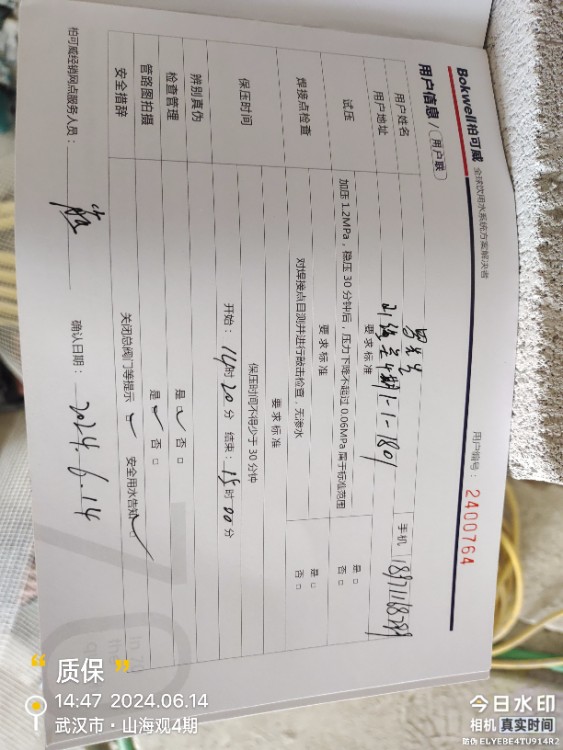 Bokwell柏可威 全球饮用水系统方案解决者
用户编号：2400764
用户信息 / 用户联
用户姓名
手机
用户地址 1-1-1801
要求标准
试压 加压 1.2MPa，稳压 30 分钟后，压力下降不超过 0.06MPa 属于标准范围 是□ 否□
要求标准
焊接点检查 对焊接点目测并进行敲击检查，无渗水 是□ 否□
要求标准
保压时间 保压时间不得少于 30 分钟
开始：14时20分 结束：15时00分
辨别真伪
检查管理 是☑ 否□
管路图拍摄 是☑ 否□
安全措辞 关闭总阀门等提示 ☑ 安全用水告知 ☑
柏可威经销网点服务人员：
确认日期：2024.6.14
“质保”
14:47 2024.06.14
武汉市·山海观4期
今日水印
相机 真实时间
防伪 ELYEBE4TU914R2